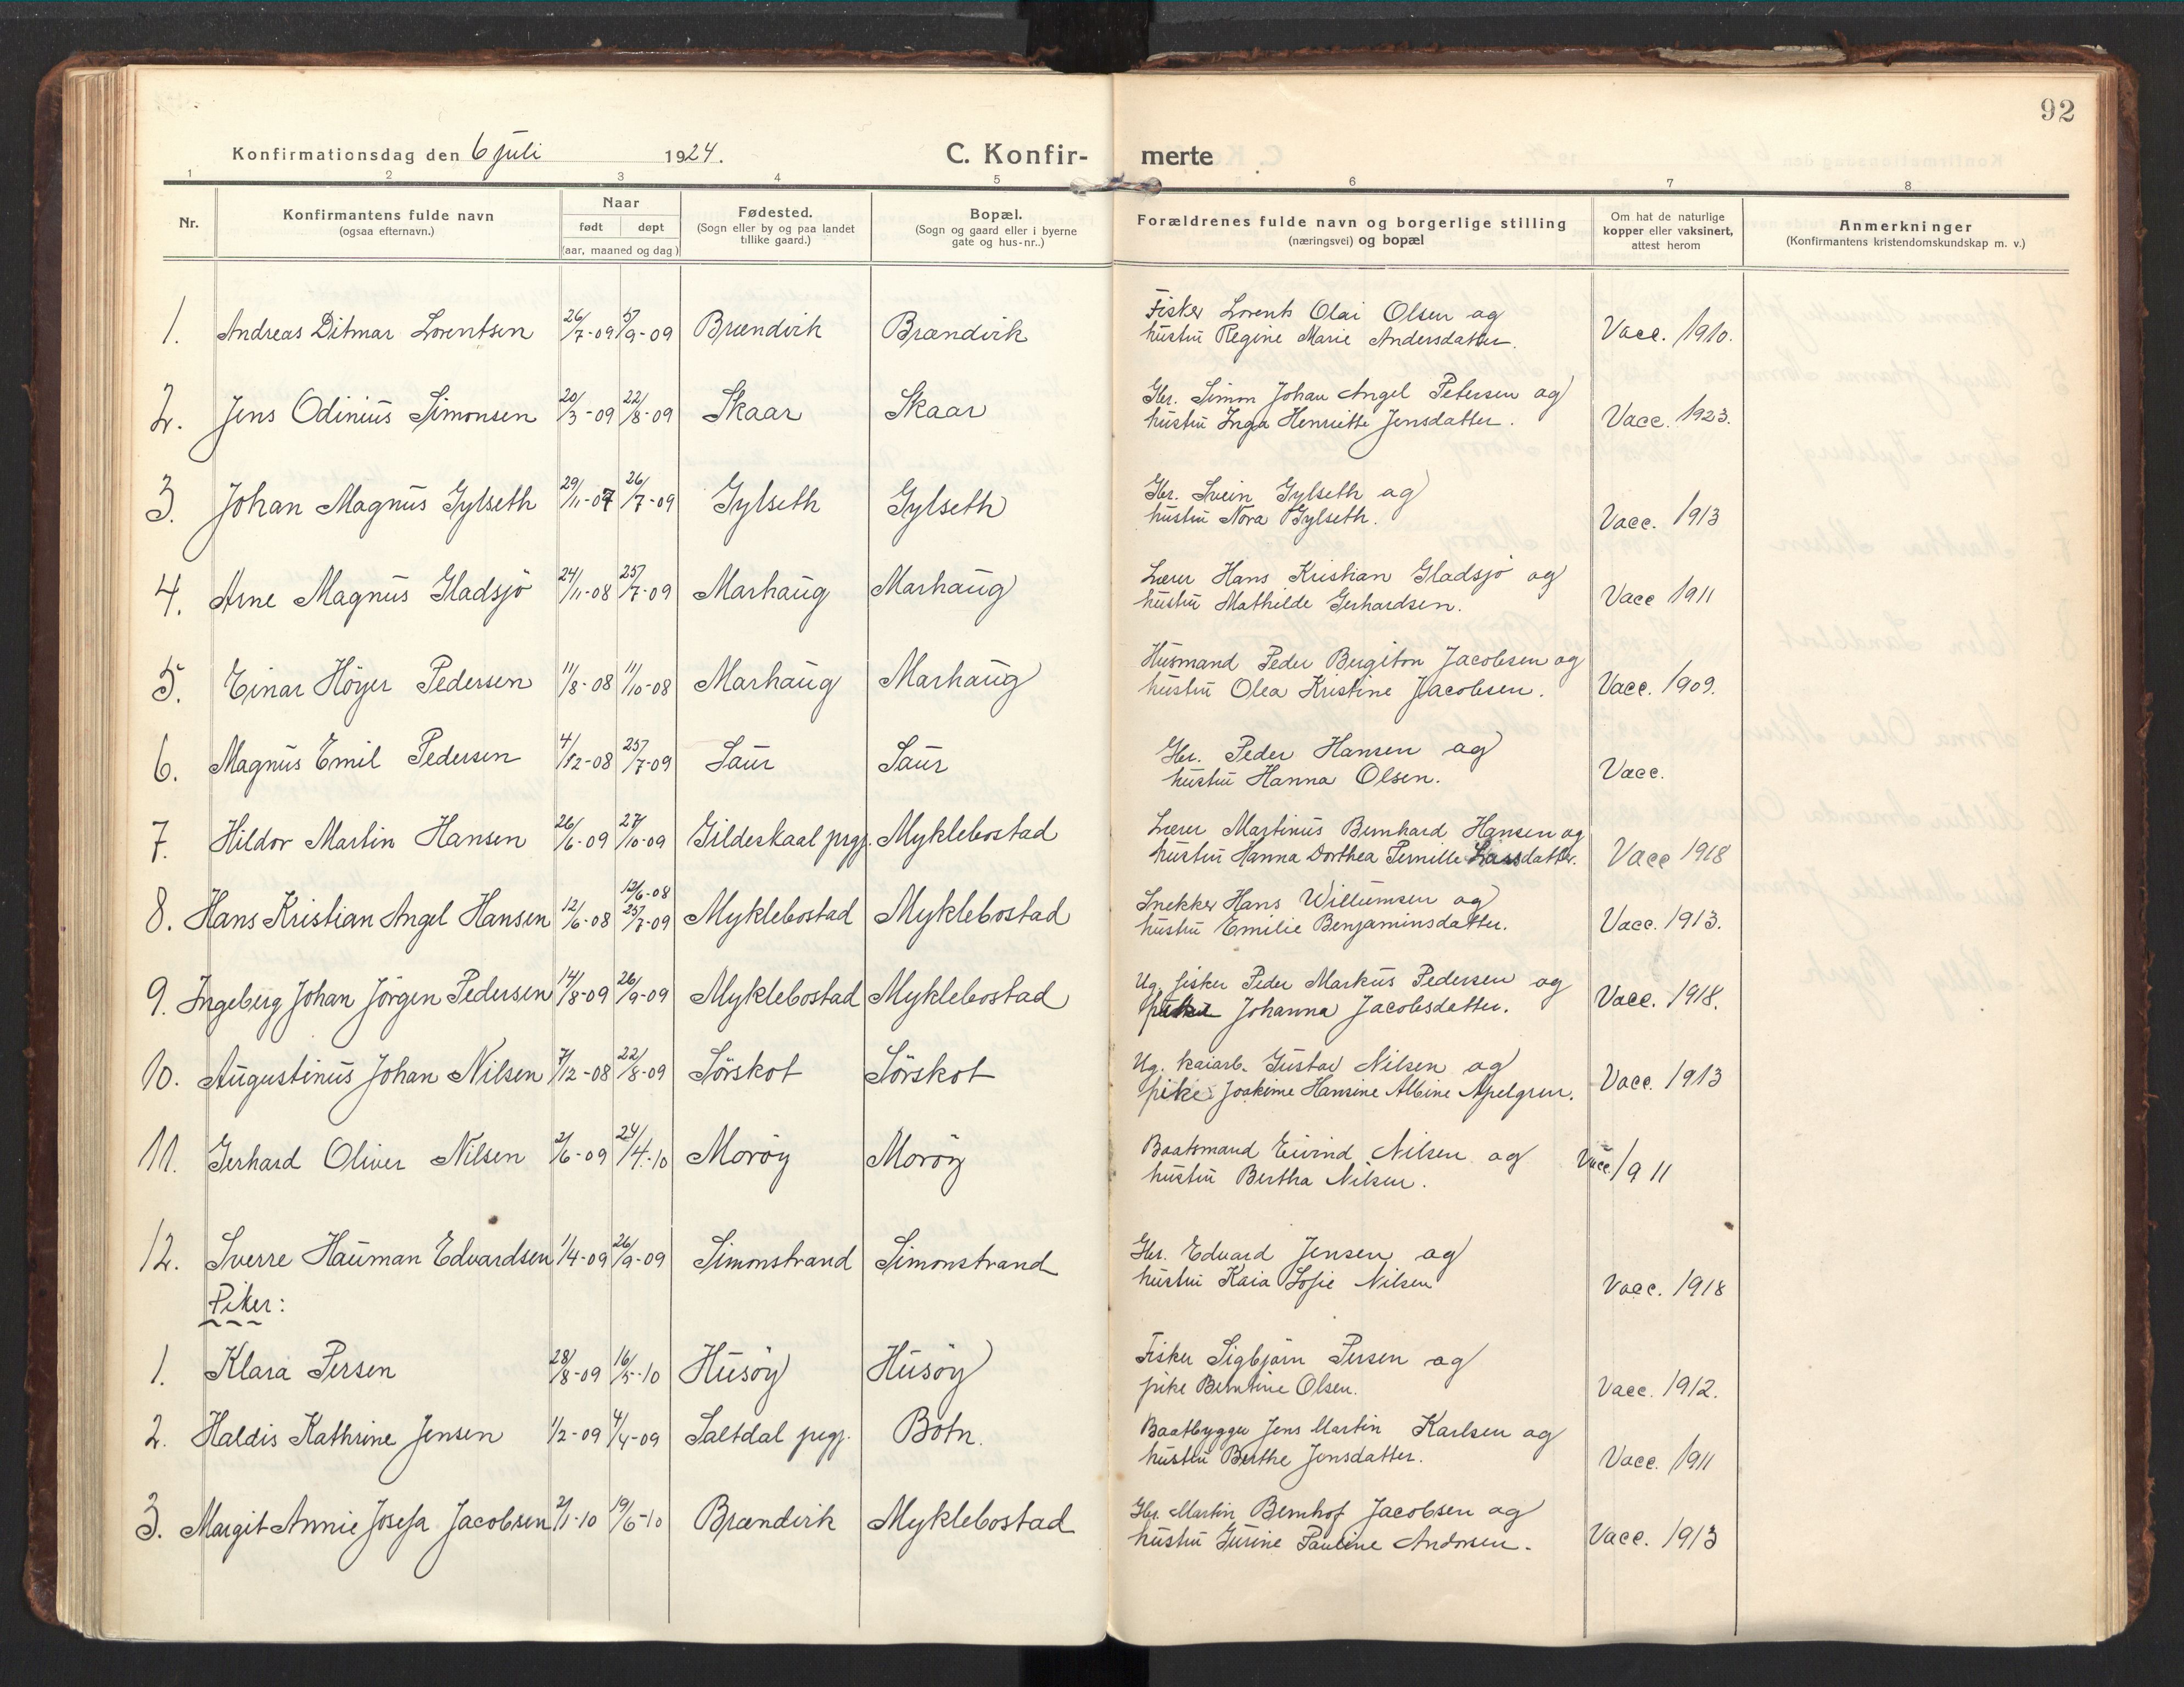 92
Konfirmationsdag den 6 juli 1924. C. Konfir- merte
1 2 3 4 5 6 7 8
Nr. Konfirmantens fulde navn (ogsaa efternavn.) Naar født døpt (aar, maaned og dag) Fødested. (Sogn eller by og paa landet tillike gaard.) Bopæl. (Sogn og gaard eller i byerne gate og hus-nr..) Forældrenes fulde navn og borgerlige stilling (næringsvei) og bopæl Om hat de naturlige kopper eller vaksinert, attest herom Anmerkninger (Konfirmantens kristendomskundskap m. v.)
1. Andreas Ditmar Lorentsen 26/7-09 5/9-09 Brændvik Brændvik Fisker Lorents Olai Olsen og
hustru Regine Marie Andersdatter. Vacc. 1910.
2. Jens Odinius Simonsen 20/3-09 22/8-09 Skaar Skaar Gbr. Simon Johan Angel Petersen og
hustru Inga Henriette Jensdatter. Vacc. 1923.
3. Johan Magnus Gylseth 29/11-07 26/7-09 Gylseth Gylseth Gbr. Svein Gylseth og
hustru Nora Gylseth. Vacc. 1913
4. Arne Magnus Gladsjö 24/11-08 25/7-09 Marhaug Marhaug Lærer Hans Kristian Gladsjö og
hustru Mathilde Gerhardsen. Vacc 1911
5. Einar Höyer Pedersen 11/8-08 11/10-08 Marhaug Marhaug Husmand Peder Bergiton Jacobsen og
hustru Olea Kristine Jacobsen. Vacc. 1909.
6. Magnus Emil Pedersen 4/12-08 25/7-09 Saur Saur Gbr. Peder Hansen og
hustru Hanna Olsen. Vacc.
7. Hildor Martin Hansen 26/6-09 27/10-09 Gildeskaal prgj. Myklebostad Lærer Martinus Bernhard Hansen og
hustru Hanna Dorthea Pernille Larsdatter. Vacc 1918
8. Hans Kristian Angel Hansen 12/6-08 12/6-08 25/7-09 Myklebostad Myklebostad Snekker Hans Willumsen og
hustru Emilie Benjaminsdatter. Vacc. 1913.
9. Ingeberg Johan Jörgen Pedersen 14/8-09 26/9-09 Myklebostad Myklebostad Ug. fisker Peder Markus Pedersen og
pike Johanna Jacobsdatter. Vacc. 1918.
10. Augustinus Johan Nilsen 7/12-08 22/8-09 Sörskot Sörskot Ug. kaiarb. Gustav Nilsen og
pike Joakime Hansine Albine Apelgren. Vacc. 1913
11. Gerhard Oliver Nilsen 2/6-09 24/4-10 Moröy Moröy Baatsmand Eivind Nilsen og
hustru Bertha Nilsen. Vacc. 1911
12. Sverre Hauman Edvardsen 1/4-09 26/9-09 Simonstrand Simonstrand Gbr. Edvard Jensen og
hustru Kaia Sofie Nilsen Vacc. 1918
Piker:
1. Klara Persen 28/8-09 16/5-10 Husöy Husöy Fisker Sigbjörn Persen og
pike Berntine Olsen. Vacc. 1912.
2. Haldis Kathrine Jensen 1/2-09 4/4-09 Saltdal prgj. Botn. Baatbygger Jens Martin Karlsen og
hustru Berthe Jensdatter. Vacc. 1911
3. Margit Annie Josefa Jacobsen 2/1-10 19/6-10 Brændvik Myklebostad Gbr. Martin Bernhof Jacobsen og
hustru Gurine Pauline Andorsen. Vacc. 1913